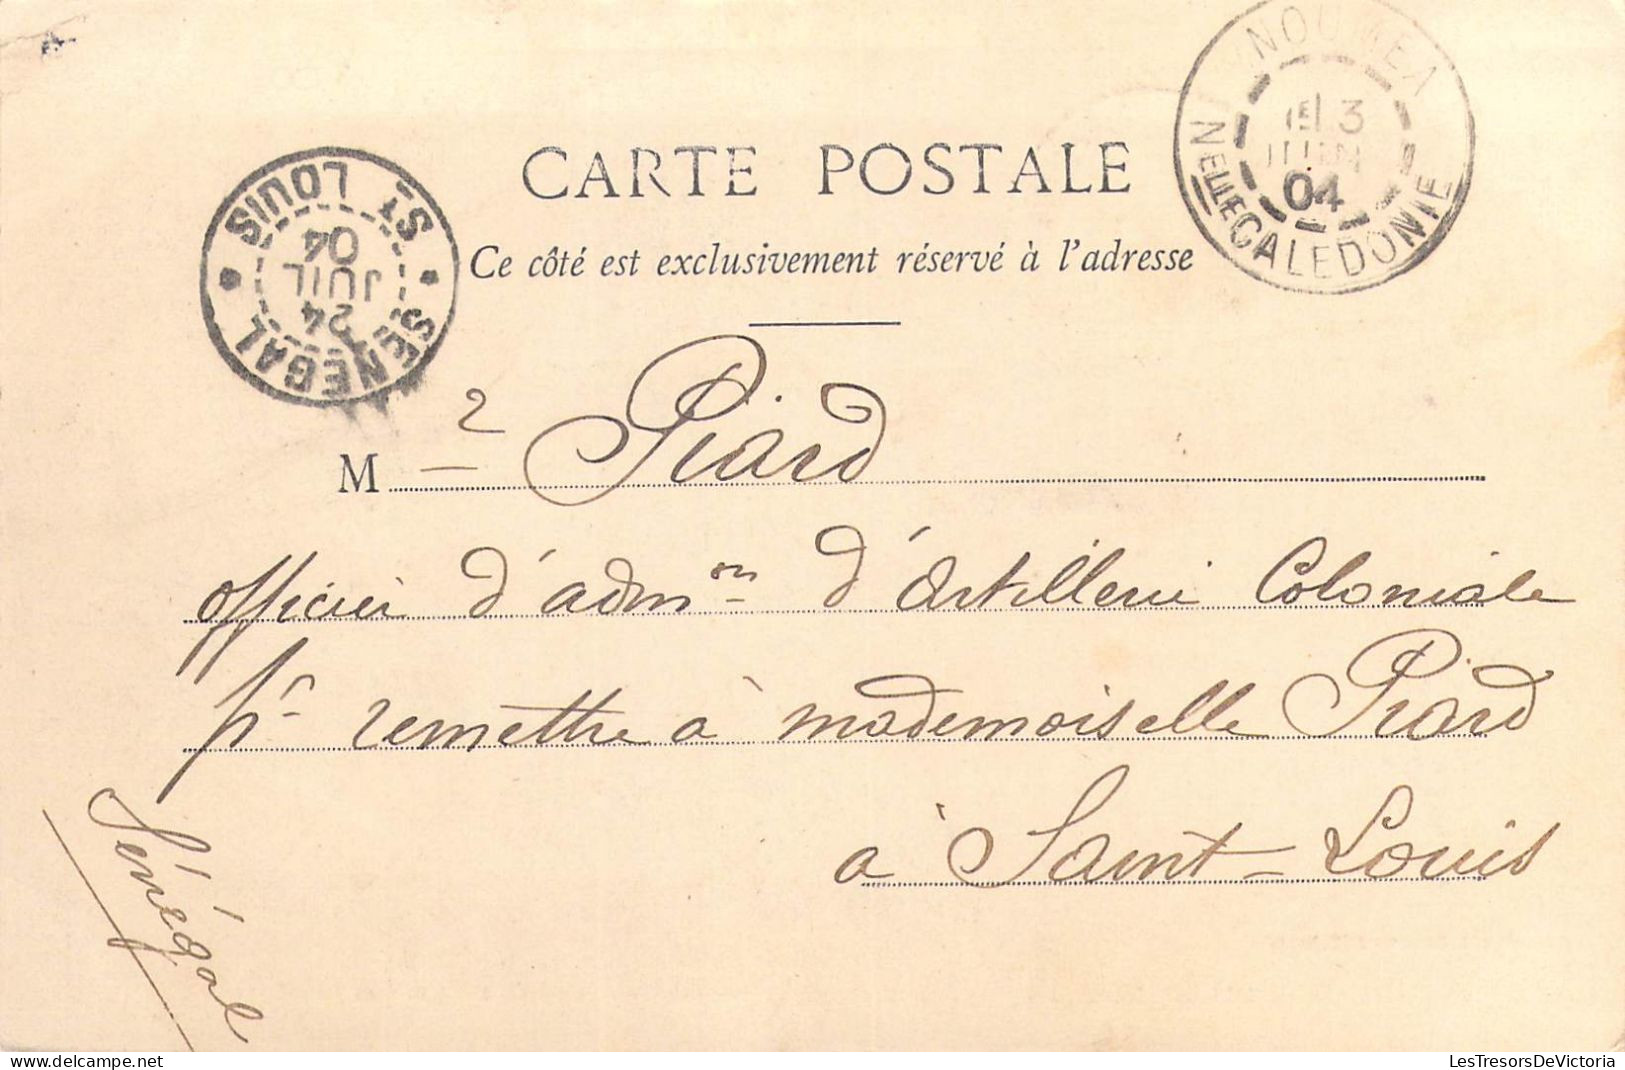 NOUMEA
1E 3
JUIN
04
NELLE CALEDONIE
CARTE POSTALE
ST LOUIS
24
JUIL
04
SENEGAL
Ce côté est exclusivement réservé à l'adresse
M r Piard
officier d'admon d'Artillerie Coloniale
pr remettre à mademoiselle Piard
à Saint-Louis
Sénégal
delcampe.net
LesTresorsDeVictoria